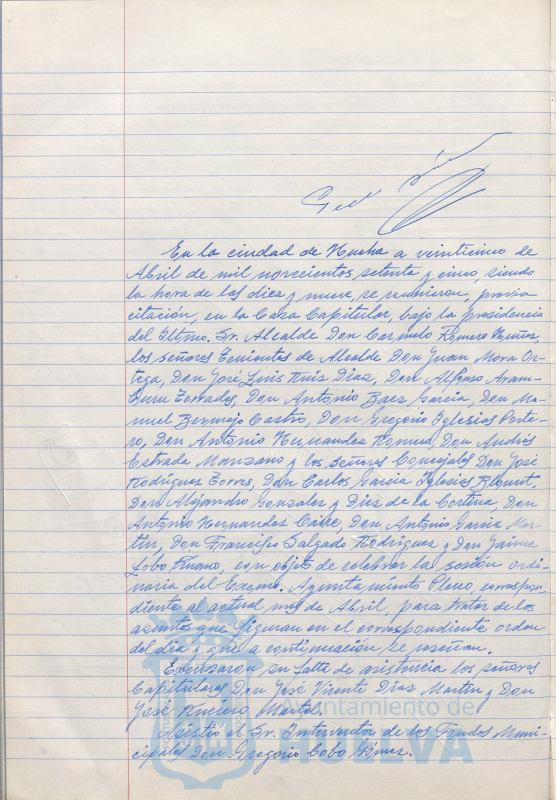 En la ciudad de Huelva a veinticinco de
Abril de mil novecientos setenta y cinco, siendo
la hora de las diez y nueve, se reunieron, previa
citación, en la Casa Capitular, bajo la presidencia
del Iltmo. Sr. Alcalde Don Carmelo Romero Núñez,
los señores Tenientes de Alcalde Don Juan Mora Or-
tega, Don José Luis Ruiz Díaz, Don Alfonso Aram-
buru Terrades, Don Antonio Baez García, Don Ma-
nuel Bermejo Castro, Don Gregorio Iglesias Porte-
ro, Don Antonio Hernandez Romero, Don Andrés
Estrada Manzano y los señores Concejales Don José
Rodríguez Torres, Don Carlos García Iglesias Blount,
Don Alejandro Gonzalez y Diez de la Cortina, Don
Antonio Hernandez Caire, Don Antonio García Mar-
tín, Don Francisco Salgado Rodríguez y Don Jaime
Lobo, con objeto de celebrar la sesión ordi-
naria del Excmo. Ayuntamiento Pleno, correspon-
diente al actual mes de Abril, para tratar de los
asuntos que figuran en el correspondiente orden
del día y que a continuación se reseñan.
Excusaron su falta de asistencia los señores
Capitulares Don José Vicente Díaz Martín y Don
José Martel.
Asistió el Sr. Interventor de los Fondos Muni-
cipales Don Gregorio Cobo Gómez.
Ayuntamiento de
HUELVA